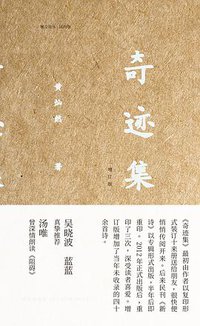 奇迹集
增订版
黄灿然 著
《奇迹集》最初由作者以复印形
式装订十来册送给朋友，很快便
悄悄传阅开来。后来民刊《新
诗》以专辑形式出版，半年后即
重印。2012年正式出版后，重
印了三次，深受读者喜爱。增
订版增加了当年未收录的四十
余首诗。
吴晓波 蓝蓝
真挚推荐
汤唯
曾深情朗读《阻碍》